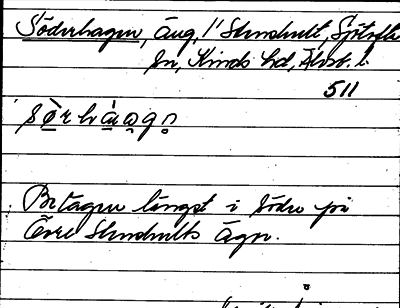 Söderhagen, äng, 1' Stenshult, Sjötofta
sn, Kinds hd, Älvsb. l.
511
Betagen längst i söder på
Övre Stenshults ägor.